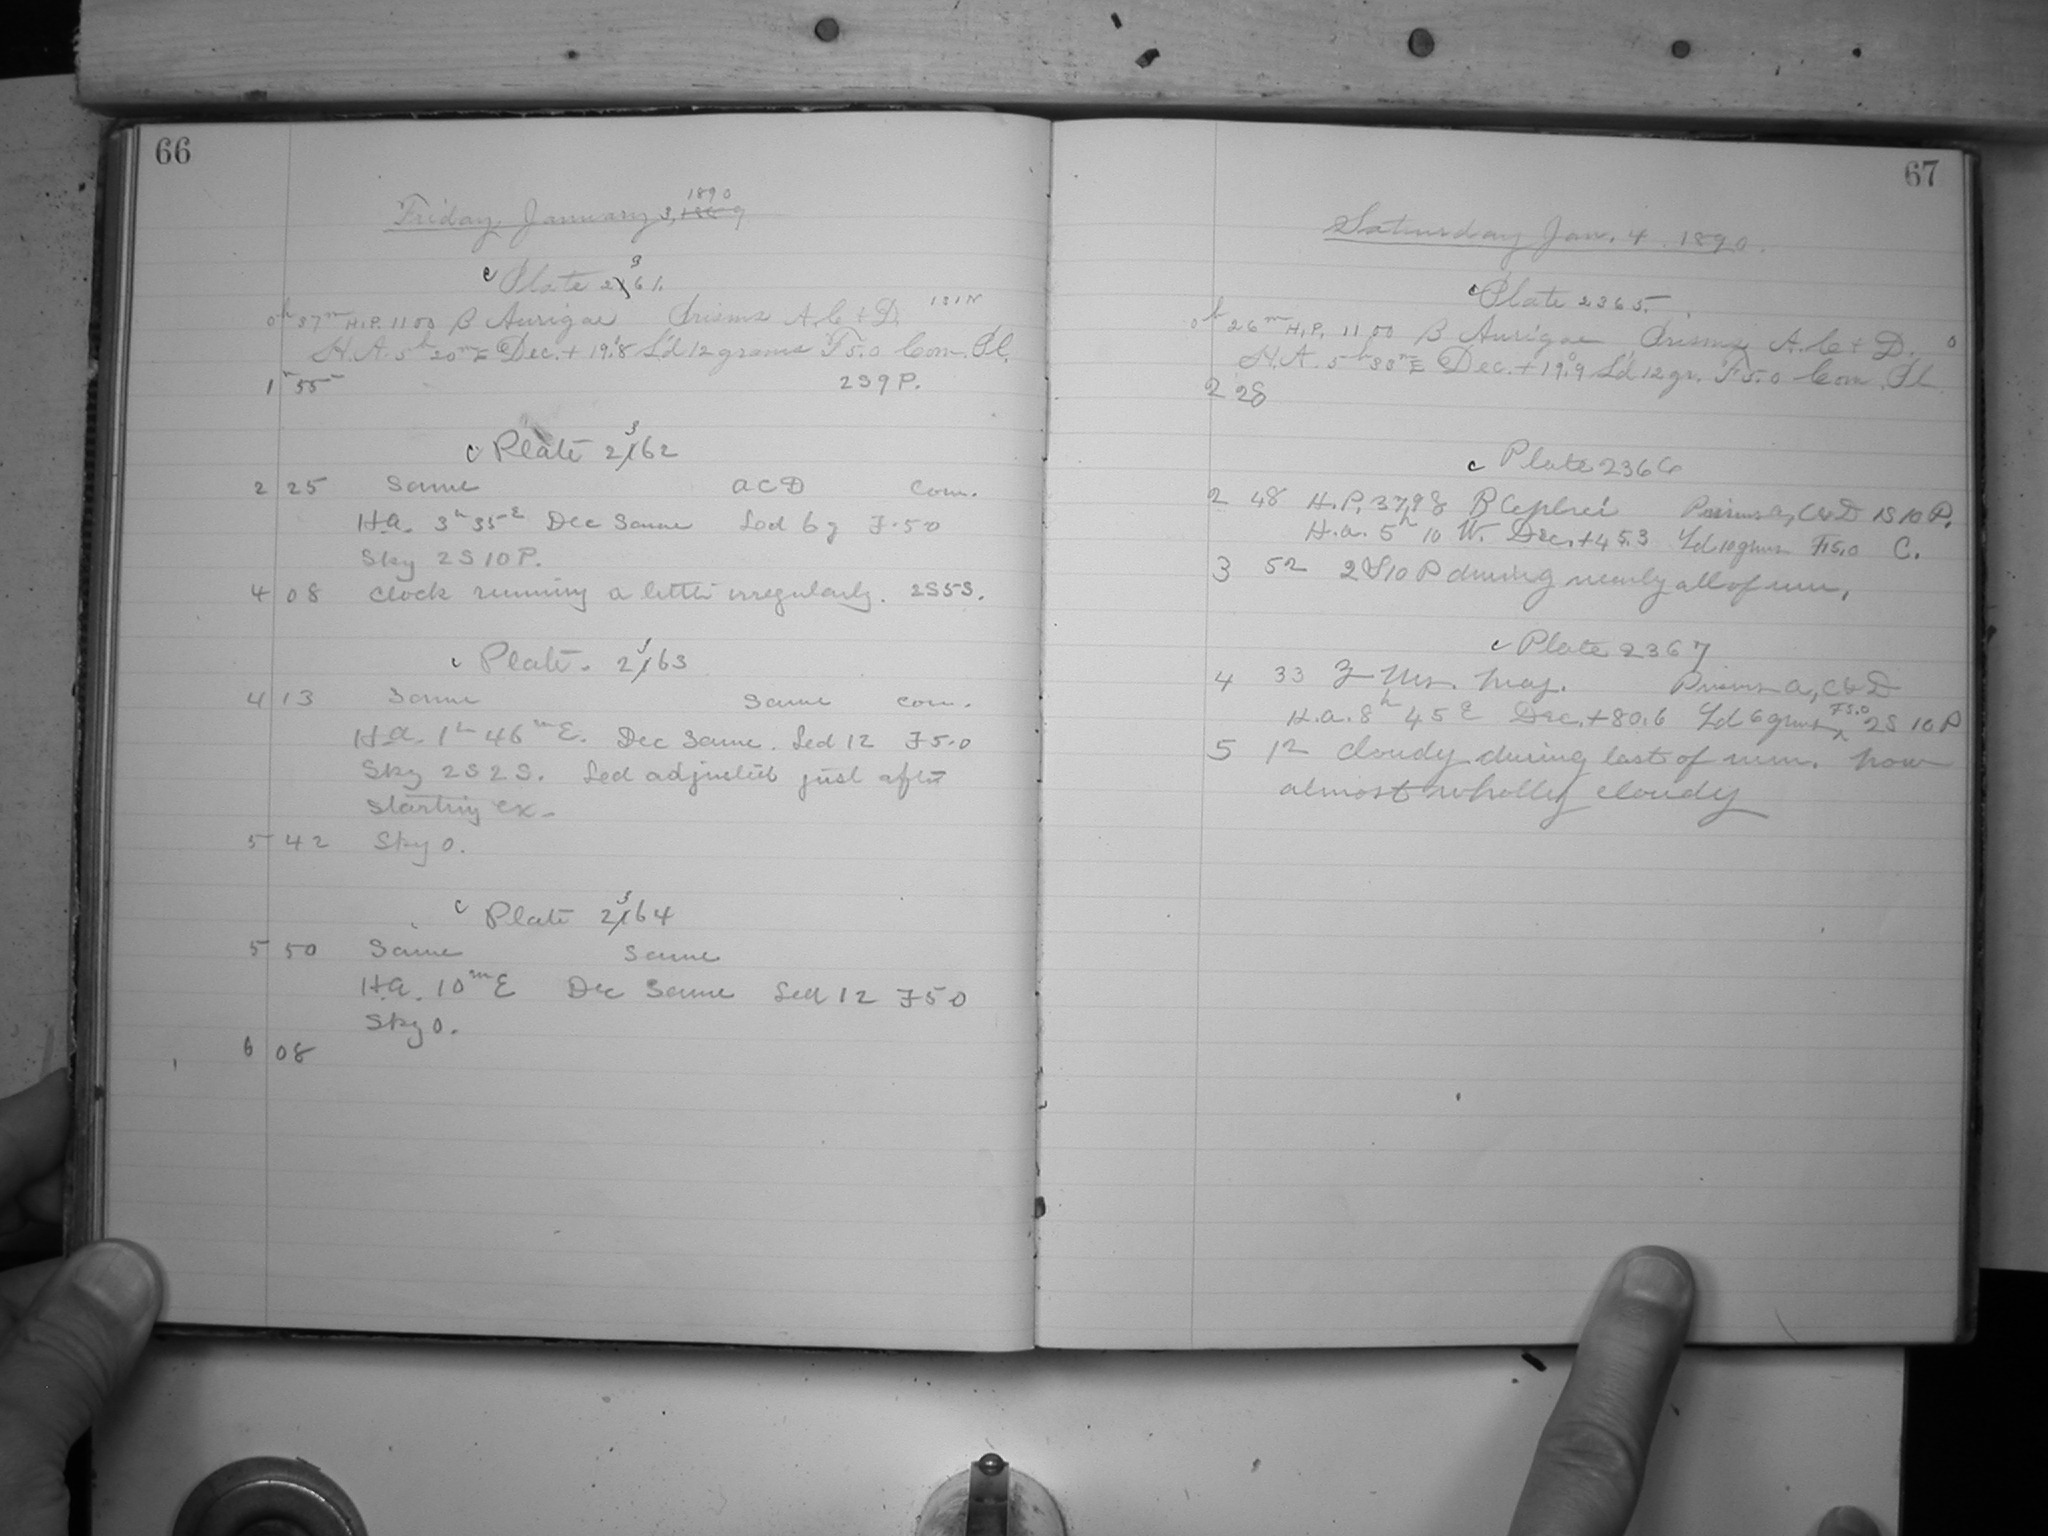 66
Friday, January 3, 1890
c Plate 2361.
0h 37m H.P. 1100 β Aurigae Prisms A, C & D.
H.A. 5h 20m E Dec. + 19.8 L'd 12 grams F5.0 Com. Pl.
1 55 2S9P.
c Plate 2362
2 25 Same A C D Com.
H.A. 3h 35 E Dec Same Led 6g F.50
Sky 2S10P.
4 08 Clock running a little irregularly. 2S5S.
c Plate. 2363
4 13 Same Same Com.
H.A. 1h 46m E. Dec Same. Led 12 F5.0
Sky 2S2S. Led adjusted just after
starting ex.
5 42 Sky 0.
c Plate 2364
5 50 Same Same
H.A. 10m E Dec Same Led 12 F50
Sky 0.
6 08
67
Saturday Jan. 4. 1890.
c Plate 2365.
0h 26m H.P. 1100 β Aurigae Prisms A. C & D. 0
H.A. 5h 33m E Dec. + 19.9 L'd 12 gr. F5.0 Com. Pl
2 28
c Plate 2366
2 48 H.P. 3798 B Cephei Prisms A, C & D 1S10P.
H.a. 5h 10 W. Dec. +45.3 Ld 10 grms F5.0 C.
3 52 2S10P during nearly all of run.
c Plate 2367
4 33 Z Urs. Maj. Prisms A, C & D
H.a. 8h 45 E Dec. +80.6 Ld 6 grms F5.0 2S10P
5 12 Cloudy during last of run. now
almost wholly cloudy